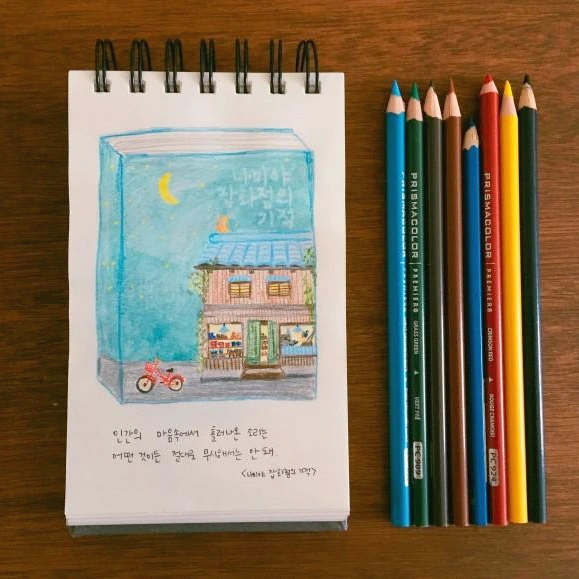 나미야
잡화점의
기적
인간의 마음속에서 흘러나온 소리는
어떤 것이든 절대로 무시해서는 안 돼.
<나미야 잡화점의 기적>
PRISMACOLOR PREMIER
GRASS GREEN
PC 909
PRISMACOLOR PREMIER
CRIMSON RED
ROUGE CRAMOISI
PC 924